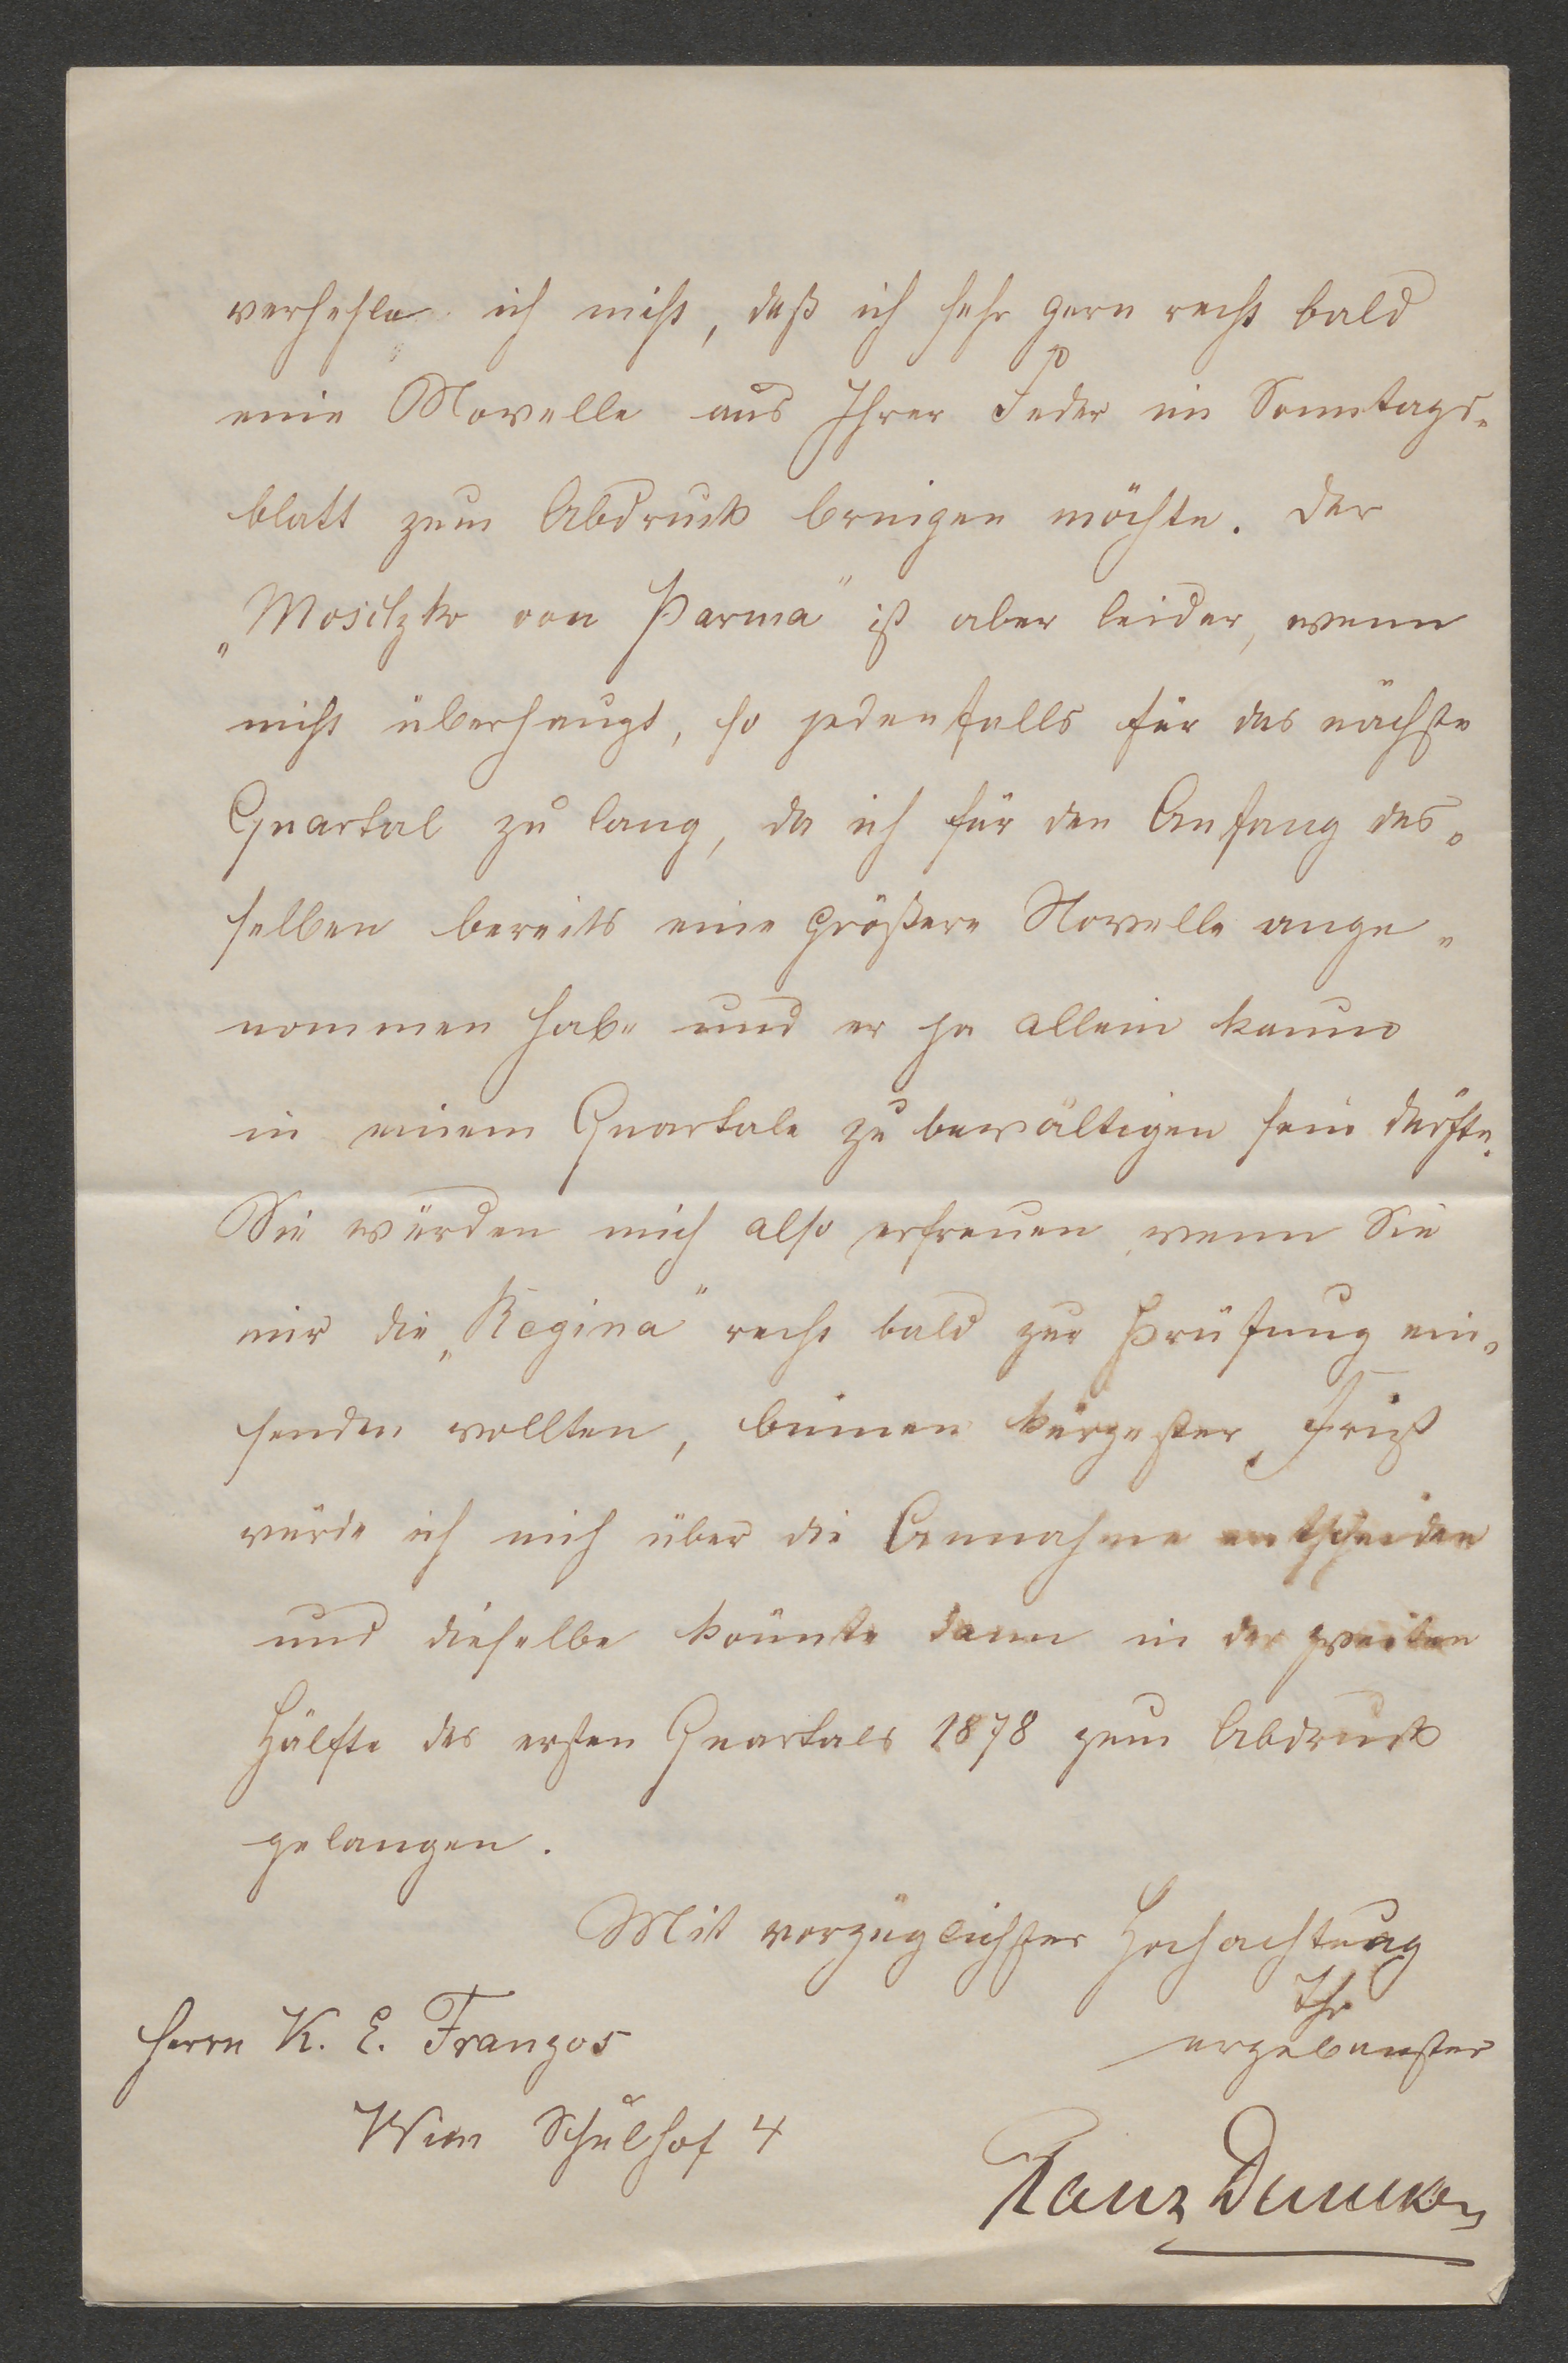 verhehle ich nicht, daß ich sehr gern recht bald
eine Novelle aus Ihrer Feder im Sonntags-
blatt zum Abdruck bringen möchte. Der
„Moschko von Parma" ist aber leider, wenn
nicht überhaupt, so jedenfalls für das nächste
Quartal zu lang, da ich für den Anfang des-
selben bereits eine größere Novelle ange-
nommen habe und er ja allein kaum
in einem Quartale zu bewältigen sein dürfte.
Sie würden mich also erfreuen, wenn Sie
mir die „Regina" recht bald zur Prüfung ein-
senden wollten, binnen kürzester Frist
würde ich mich über die Annahme entscheiden
und dieselbe könnte dann in der zweiten
Hälfte des ersten Quartals 1878 zum Abdruck
gelangen.
Mit vorzüglichster Hochachtung
Ihr
ergebenster
Herrn K. E. Franzos
Wien Schulhof 4
Franz Duncker